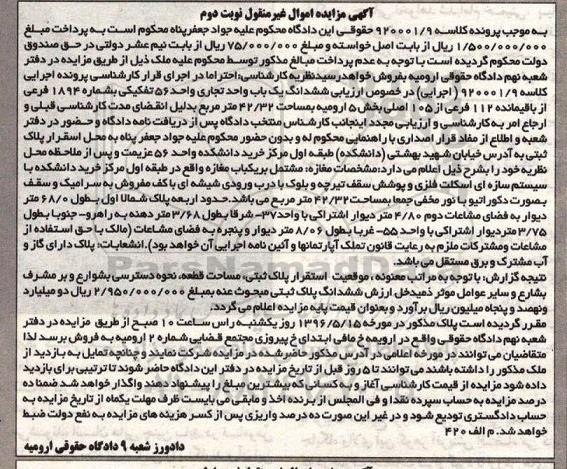 آگهی مزایده اموال غیرمنقول نوبت دوم
به موجب پرونده کلاسه ۹۲۰۰۰۱/۹ حقوقی این دادگاه محکوم علیه جواد جعفرپناه محکوم است به پرداخت مبلغ
۱/۵۰۰/۰۰۰/۰۰۰ ریال از بابت اصل خواسته و مبلغ ۷۵/۰۰۰/۰۰۰ ریال از بابت نیم عشر دولتی در حق صندوق
دولت محکوم گردیده است با توجه به عدم پرداخت مبالغ مذکور توسط محکوم علیه ملک ذیل از طریق مزایده در دفتر
شعبه نهم دادگاه حقوقی ارومیه بفروش خواهد رسید نظریه کارشناسی: احتراما در اجرای قرار کارشناسی پرونده اجرایی
کلاسه ۹۲۰۰۰۱/۹ (اجرایی) در خصوص ارزیابی ششدانگ یک باب واحد تجاری واحد ۵۶ تفکیکی بشماره ۱۸۹۴ فرعی
از باقیمانده ۱۱۲ فرعی از ۱۰۵ اصلی بخش ۵ ارومیه بمساحت ۴۲/۳۲ متر مربع بدلیل انقضای مدت کارشناسی قبلی و
ارجاع امر به کارشناسی و ارزیابی مجدد اینجانب کارشناس منتخب دادگاه پس از دریافت نامه دادگاه و حضور در دفتر
شعبه و اطلاع از مفاد قرار اصداری با راهنمایی محکوم له و بدون حضور محکوم علیه جواد جعفر پناه به محل اسقرار پلاک
ثبتی به آدرس خیابان شهید بهشتی (دانشکده) طبقه اول مرکز خرید دانشکده واحد ۵۶ عزیمت و پس از ملاحظه محل
نظریه خود را بشرح ذیل اعلام می دارد: مشخصات مغازه: مشتمل بر یکباب مغازه واقع در طبقه اول مرکز خرید دانشکده با
سیستم سازه ای اسکلت فلزی و پوشش سقف تیرچه و بلوک با درب ورودی شیشه ای با کف مفروش به سرامیک و سقف
بصورت دکوراتیو با نور مخفی جمعا بمساحت ۴۲/۳۲ متر مربع می باشد. حدود اربعه پلاک شمالا اول بطول ۶/۸۰ متر
دیوار به فضای مشاعات دوم ۴/۸۰ متر دیوار اشتراکی با واحد ۳۷- شرقا بطول ۳/۶۸ متر دهنه به راهرو- جنوبا بطول
۳/۷۵ متردیوار اشتراکی با واحد ۵۵- غربا بطول ۸/۰۶ متر دیوار و پنجره به فضای مشاعات (مالک با حق استفاده از
مشاعات و مشترکات ملزم به رعایت قانون تملک آپارتمانها و آئین نامه اجرایی آن خواهد بود). انشعابات: پلاک دارای گاز و
آب مشترک و برق مستقل می باشد.
نتیجه گزارش: با توجه به مراتب معنونه، موقعیت استقرار پلاک ثبتی، مساحت قطعه، نحوه دسترسی بشوارع و بر مشرف
بشارع و سایر عوامل موثر ذمیدخل ارزش ششدانگ پلاک ثبتی مبحوث عنه بمبلغ ۲/۹۵۰/۰۰۰/۰۰۰ ریال دو میلیارد
و نهصد و پنجاه میلیون ریال برآورد و بعنوان قیمت پایه مزایده اعلام می گردد.
مقرر گردیده است پلاک مذکور در مورخه ۱۳۹۶/۵/۱۵ روز یکشنبه راس ساعت ۱۰ صبح از طریق مزایده در دفتر
شعبه نهم دادگاه حقوقی واقع در ارومیه خ مافی ابتدای خ پیروزی مجتمع قضایی شماره ۲ ارومیه به فروش برسد لذا
متقاضیان می توانند در مورخه اعلامی در آدرس مذکور حاضر شده در مزایده شرکت نمایند و چنانچه تمایل به بازدید از
ملک مذکور را داشته باشند می توانند تا ۵ روز قبل از تاریخ مزایده در دفتر این دادگاه حاضر شوند تا ترتیبی برای بازدید
داده شود مزایده از قیمت کارشناسی آغاز و به کسانی که بیشترین مبلغ را پیشنهاد دهند واگذار خواهد شد ضمنا ده
درصد مزایده به حساب سپرده نقدا و فی المجلس از برنده اخذ و مابقی می بایست ظرف مهلت یکماه از تاریخ مزایده به
حساب دادگستری تودیع شود و در غیر این صورت ده درصد واریزی پس از کسر هزینه های مزایده به نفع دولت ضبط
خواهد شد. م الف ۴۲۰
دادورز شعبه ۹ دادگاه حقوقی ارومیه